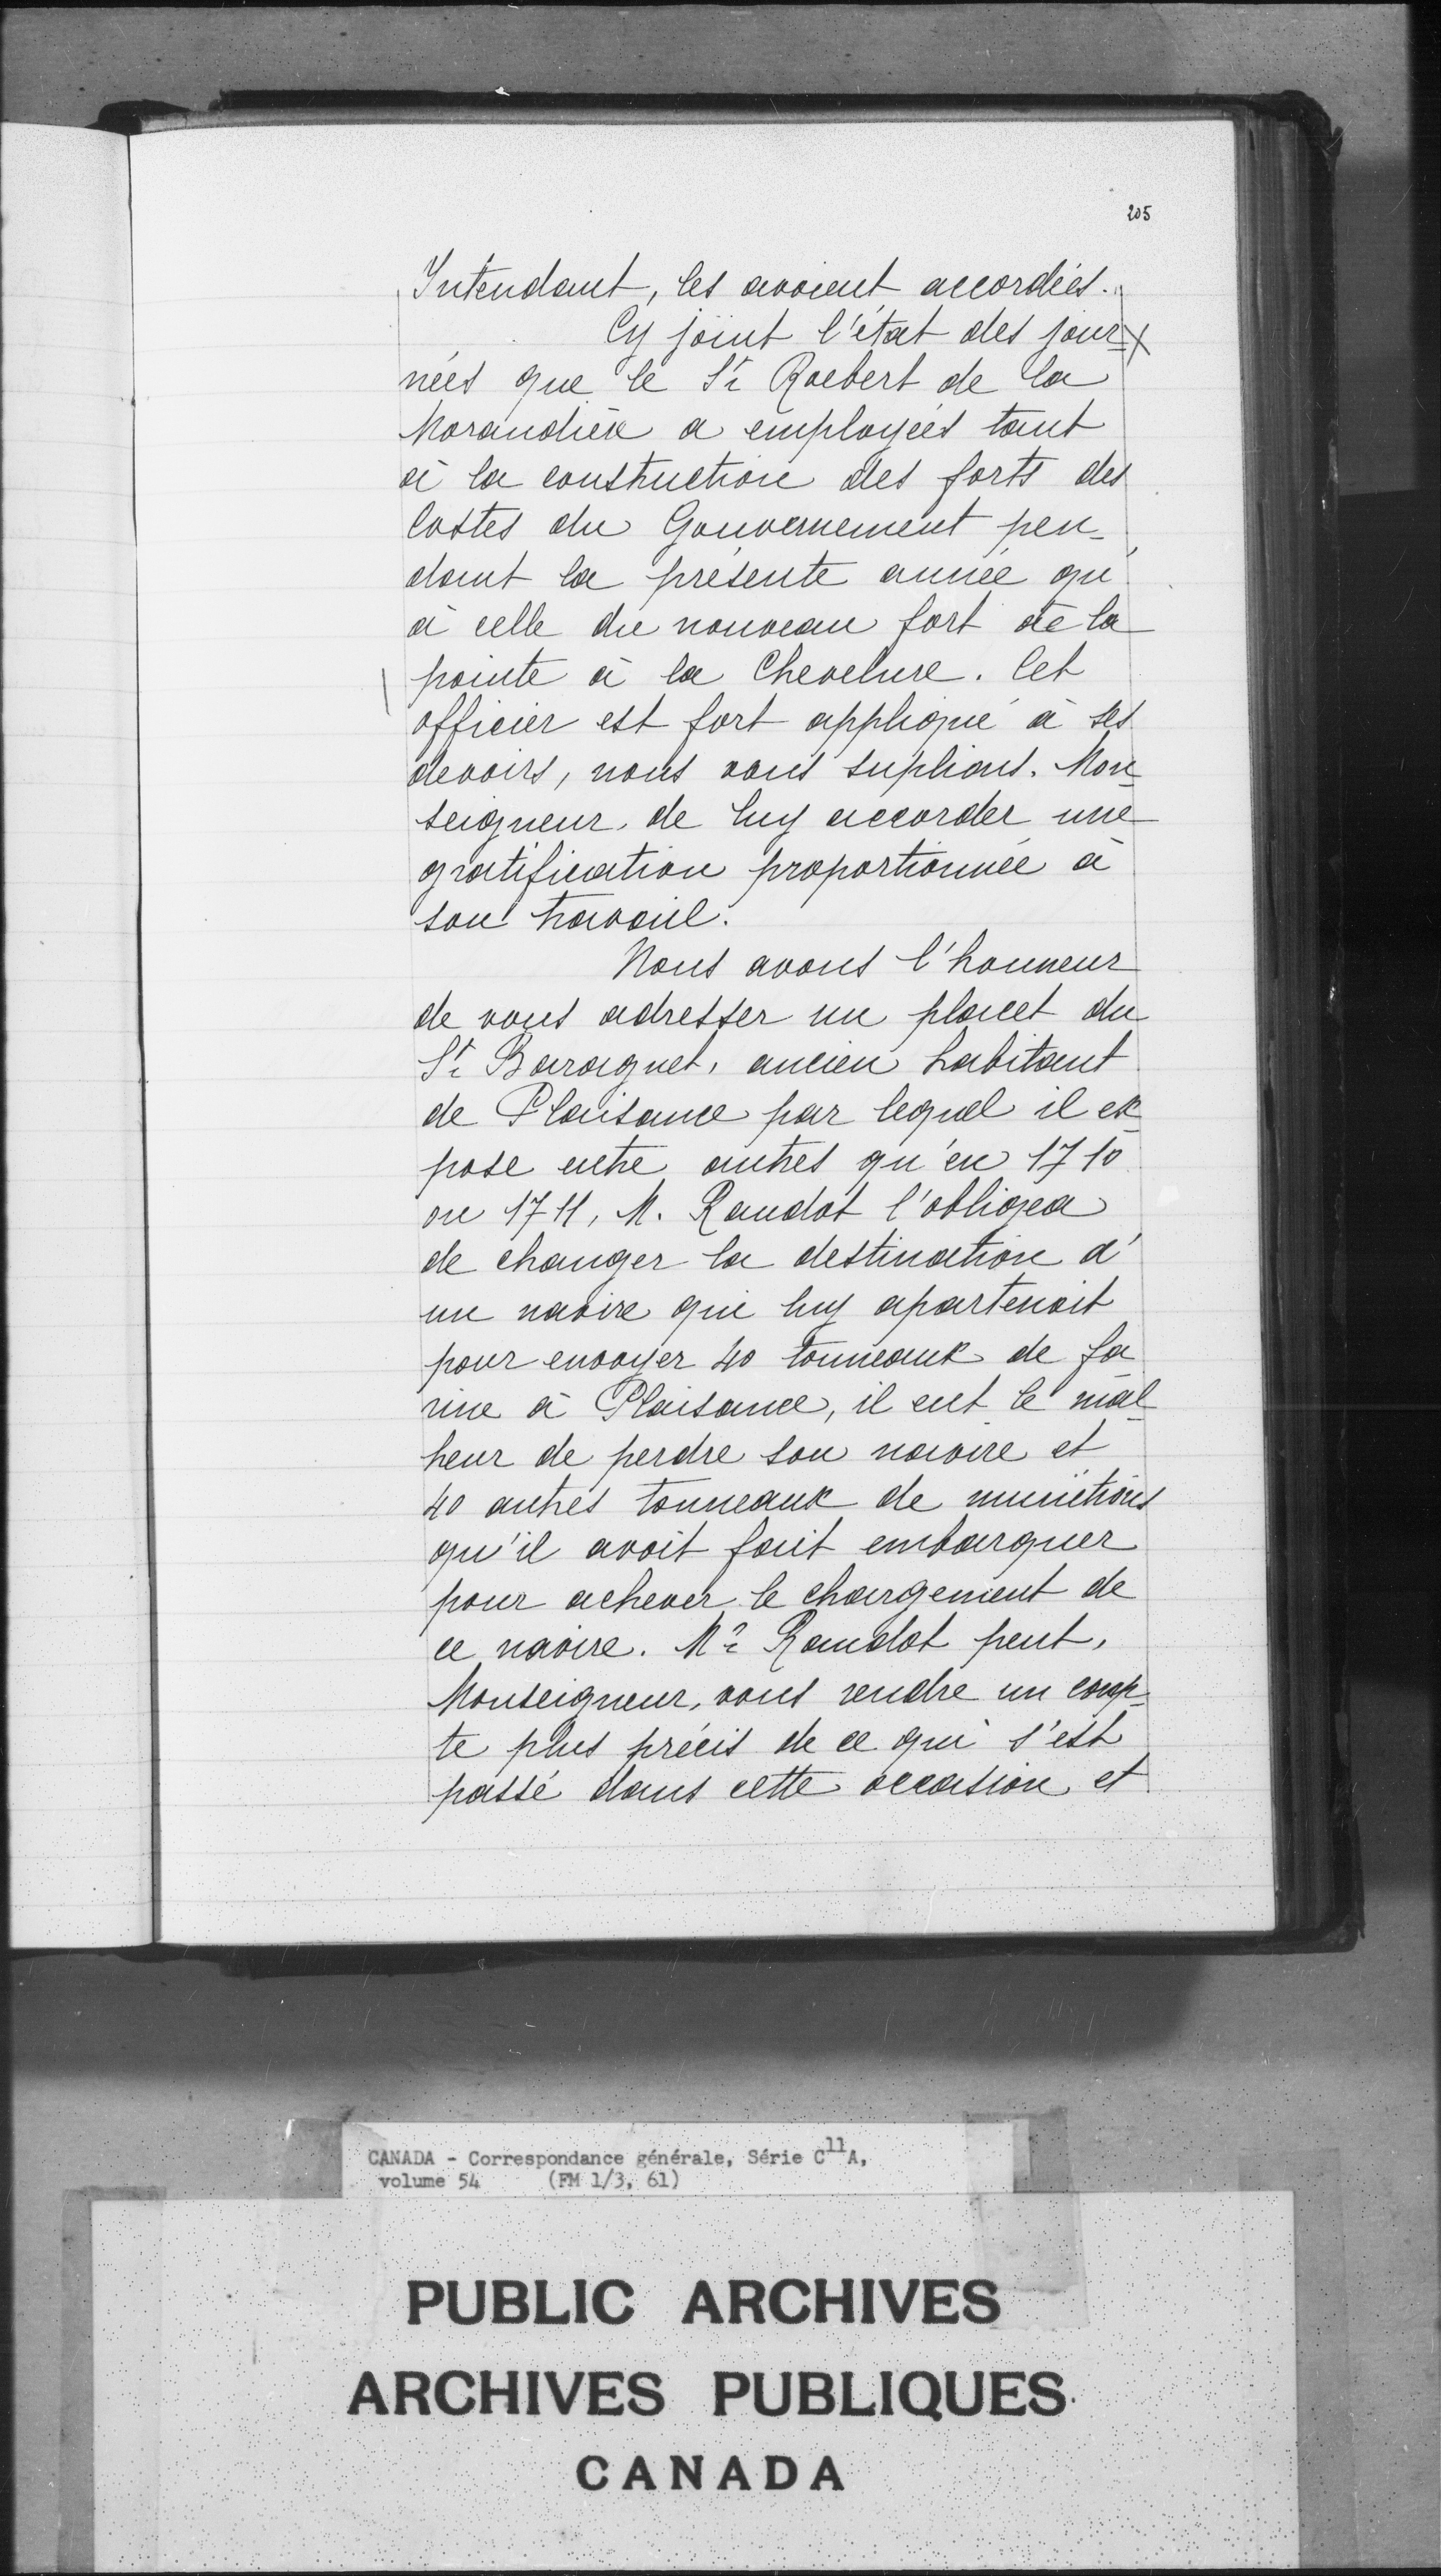 205
Intendant, les avoient accordées.
Cy joint l'état des jour=
nées que le Sr Rocbert de la
Morandière a employées tant
à la construction des forts des
Costes du Gouvernement pen-
dant la présente année qu'
à celle du nouveau fort de la
pointe à la Chevelure. Cet
officier est fort appliqué à ses
devoirs, nous vous suplions. Mon-
seigneur, de luy accorder une
gratification proportionnée à
son travail.
Nous avons l'honneur
de vous adresser un placet du
Sr Baraguet, ancien habitant
de Plaisance par lequel il ex-
pose entre autres qu'en 1710
ou 1711, M. Raudot l'obligea
de changer la destination d'
un navire qui luy apartenoit
pour envoyer 40 tonneaux de fa
rine à Plaisance, il eut le mal-
heur de perdre son navire et
40 autres tonneaux de munitions
qu'il avoit fait embarquer
pour achever le chargement de
ce navire. Mr Raudot peut,
Monseigneur, vous rendre un comp-
te plus précis de ce qui s'est
passé dans cette occasion et
CANADA - Correspondance générale, Série C11A,
volume 54 (FM 1/3, 61)
PUBLIC ARCHIVES
ARCHIVES PUBLIQUES
CANADA